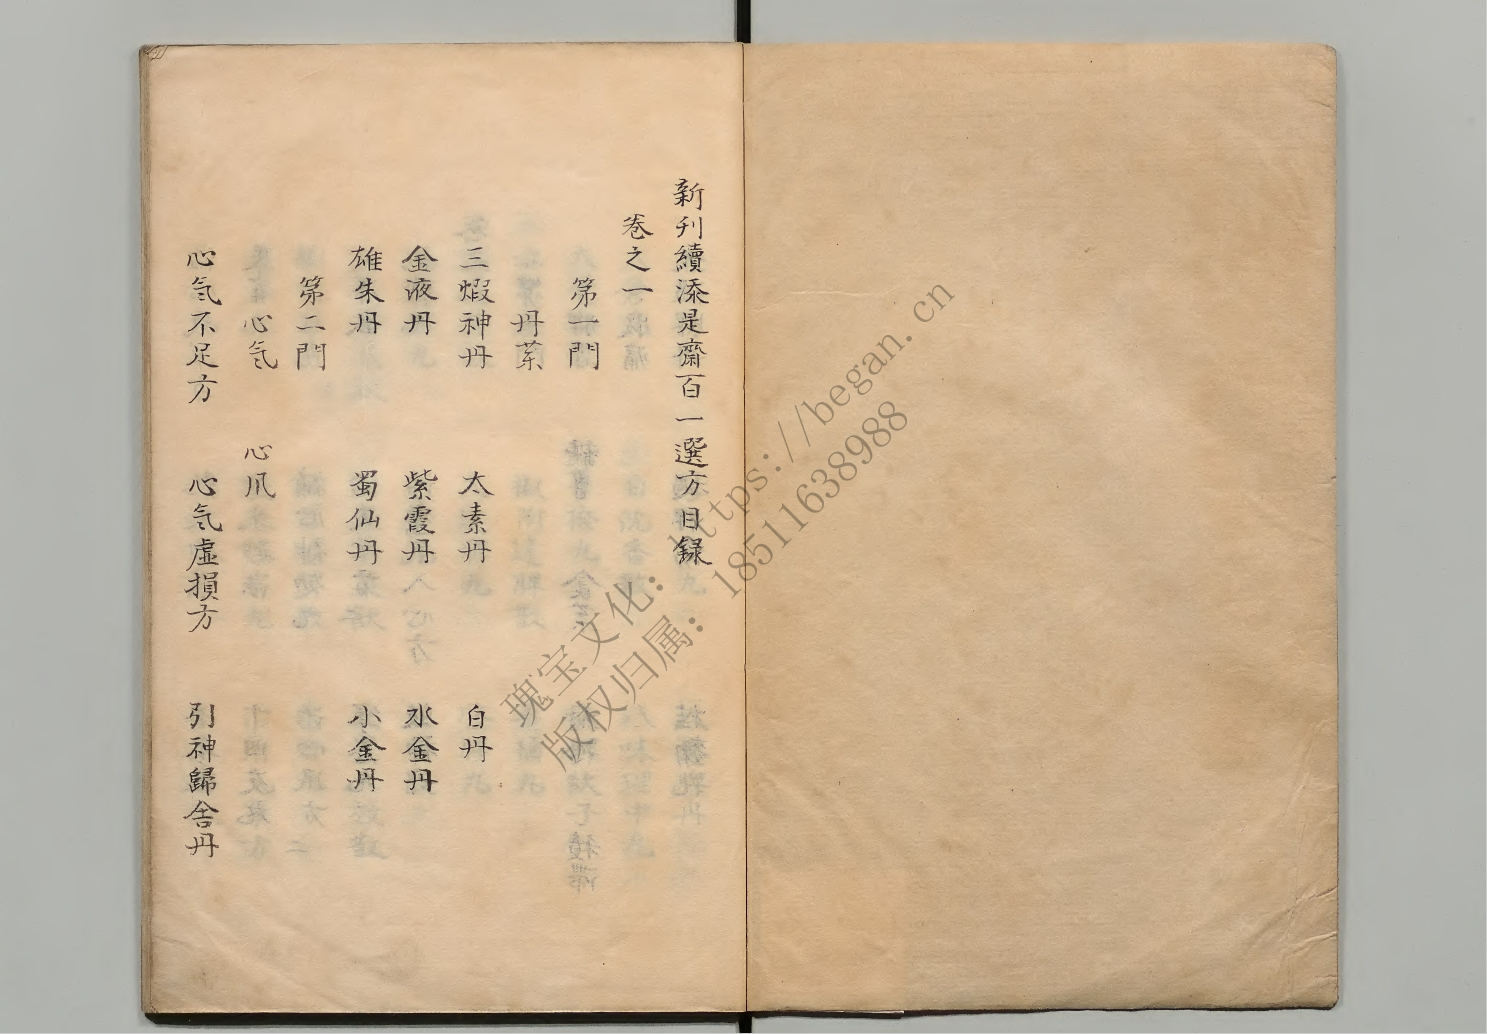 新刋續添是齋百一選方目録
卷之一
第一門
丹藥
三煆神丹 太素丹 白丹
金液丹 紫霞丹 水金丹
雄朱丹 蜀仙丹 小金丹
第二門
心氣 心風
心氣不足方 心氣虛損方 引神歸舍丹
瑰宝文化：https://began.cn
版权归属：18511638988